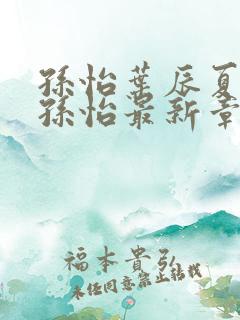 孫怡葉辰夏
孫怡最新章
福本貴弘
未經同意禁止轉載